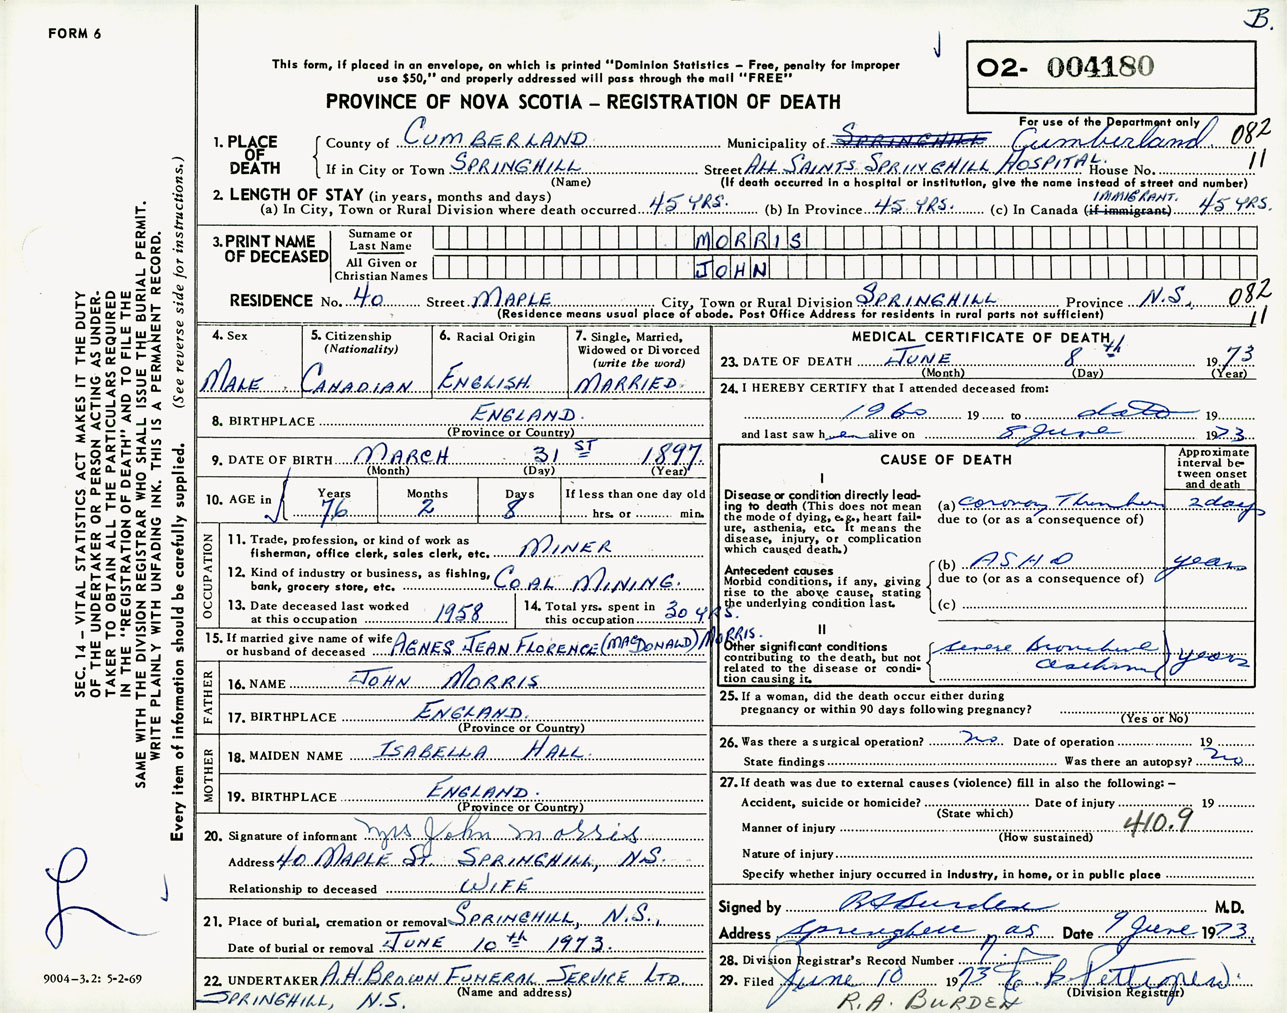 B.
FORM 6
This form, if placed in an envelope, on which is printed "Dominion Statistics – Free, penalty for improper
use $50," and properly addressed will pass through the mail "FREE"
O2- 004180
PROVINCE OF NOVA SCOTIA – REGISTRATION OF DEATH
For use of the Department only
1. PLACE OF DEATH
County of CUMBERLAND Municipality of SPRINGHILL Cumberland 082
If in City or Town SPRINGHILL Street ALL SAINTS SPRINGHILL HOSPITAL. House No. 11
(Name) (If death occurred in a hospital or institution, give the name instead of street and number)
2. LENGTH OF STAY (in years, months and days) IMMIGRANT.
(a) In City, Town or Rural Division where death occurred 45 YRS. (b) In Province 45 YRS. (c) In Canada (if immigrant) 45 YRS.
3. PRINT NAME OF DECEASED
Surname or Last Name MORRIS
All Given or Christian Names JOHN
RESIDENCE No. 40 Street MAPLE City, Town or Rural Division SPRINGHILL Province N.S. 082
(Residence means usual place of abode. Post Office Address for residents in rural parts not sufficient) 11
4. Sex
MALE
5. Citizenship
(Nationality)
CANADIAN
6. Racial Origin
ENGLISH
7. Single, Married,
Widowed or Divorced
(write the word)
MARRIED
8. BIRTHPLACE ENGLAND.
(Province or Country)
9. DATE OF BIRTH MARCH 31 ST 1897.
(Month) (Day) (Year)
10. AGE in
Years 76
Months 2
Days 8
If less than one day old
hrs. or min.
OCCUPATION
11. Trade, profession, or kind of work as
fisherman, office clerk, sales clerk, etc. MINER
12. Kind of industry or business, as fishing,
bank, grocery store, etc. COAL MINING.
13. Date deceased last worked
at this occupation 1958
14. Total yrs. spent in
this occupation 30 YRS.
15. If married give name of wife
or husband of deceased AGNES JEAN FLORENCE (MACDONALD) MORRIS.
FATHER
16. NAME JOHN MORRIS
17. BIRTHPLACE ENGLAND.
(Province or Country)
MOTHER
18. MAIDEN NAME ISABELLA HALL.
19. BIRTHPLACE ENGLAND.
(Province or Country)
20. Signature of informant Mrs John Morris
Address 40 MAPLE ST. SPRINGHILL, N.S.
Relationship to deceased WIFE
21. Place of burial, cremation or removal SPRINGHILL, N.S.,
Date of burial or removal JUNE 10th 1973.
22. UNDERTAKER A.H. BROWN FUNERAL SERVICE LTD.
(Name and address)
SPRINGHILL, N.S.
MEDICAL CERTIFICATE OF DEATH
23. DATE OF DEATH JUNE 8th 1973
(Month) (Day) (Year)
24. I HEREBY CERTIFY that I attended deceased from:
1960 19 to date 19
and last saw h en alive on 8 June 1973
CAUSE OF DEATH
Approximate
interval be-
tween onset
and death
I
Disease or condition directly lead-
ing to death (This does not mean
the mode of dying, e.g., heart fail-
ure, asthenia, etc. It means the
disease, injury, or complication
which caused death.)
(a) Coronary 2 days
due to (or as a consequence of)
Antecedent causes
Morbid conditions, if any, giving
rise to the above cause, stating
the underlying condition last.
(b) ASHD years
due to (or as a consequence of)
(c)
II
Other significant conditions
contributing to the death, but not
related to the disease or condi-
tion causing it.
severe Bronchial
asthma years
25. If a woman, did the death occur either during
pregnancy or within 90 days following pregnancy?
(Yes or No)
26. Was there a surgical operation? no Date of operation 19
State findings Was there an autopsy? no
27. If death was due to external causes (violence) fill in also the following:–
Accident, suicide or homicide? Date of injury 19
(State which)
Manner of injury 410.9
(How sustained)
Nature of injury
Specify whether injury occurred in industry, in home, or in public place
Signed by RA Burden M.D.
Address Springhill Date 9 June 1973.
28. Division Registrar's Record Number
29. Filed June 10 1973 B Pettigrew.
(Division Registrar)
R.A. BURDEN
SEC. 14 – VITAL STATISTICS ACT MAKES IT THE DUTY
OF THE UNDERTAKER OR PERSON ACTING AS UNDER-
TAKER TO OBTAIN ALL THE PARTICULARS REQUIRED
IN THE "REGISTRATION OF DEATH" AND TO FILE THE
SAME WITH THE DIVISION REGISTRAR WHO SHALL ISSUE THE BURIAL PERMIT.
WRITE PLAINLY WITH UNFADING INK. THIS IS A PERMANENT RECORD.
Every item of information should be carefully supplied. (See reverse side for instructions.)
9004–3.2: 5-2-69